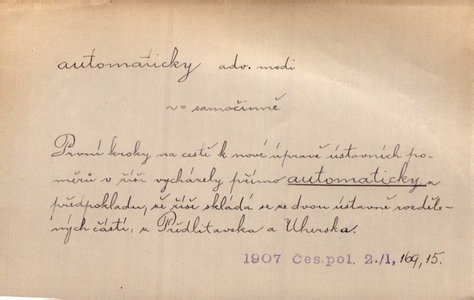 automaticky adv. modi
~ = samočinně
První kroky na cestě k nové úpravě ústavních po-
měrů v říši vycházely přímo automaticky z
předpokladu, že říše skládá se ze dvou ústavně rozděle-
ných částí, z Předlitavska a Uherska.
1907 Čes.pol. 2./1, 169, 15.